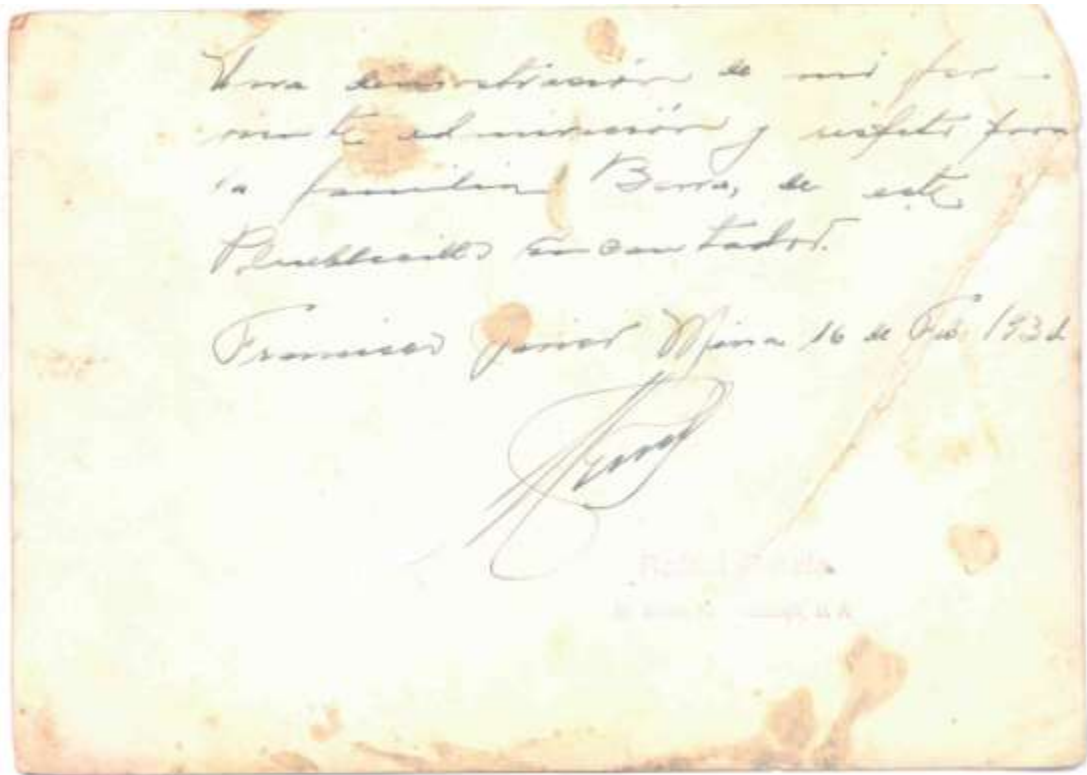 Una demostración de mi fer-
viente admiración y respeto para
la familia de este
Pueblecillo Encantador.
Francisco Javier Mina 16 de Feb. 193